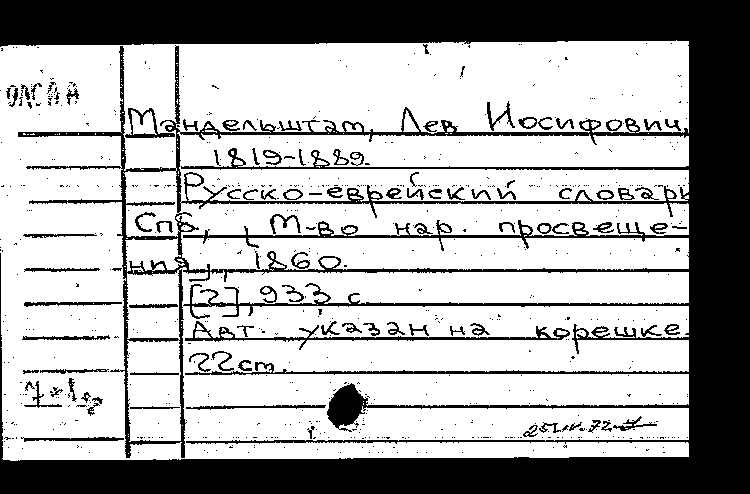 Мандельштам, Лев Иосифович,
1819-1889.
Русско-еврейский словарь
Спб, [М-во нар. просвеще-
ния], 1860.
[2], 933 с.
Авт. указан на корешке.
22 cm.